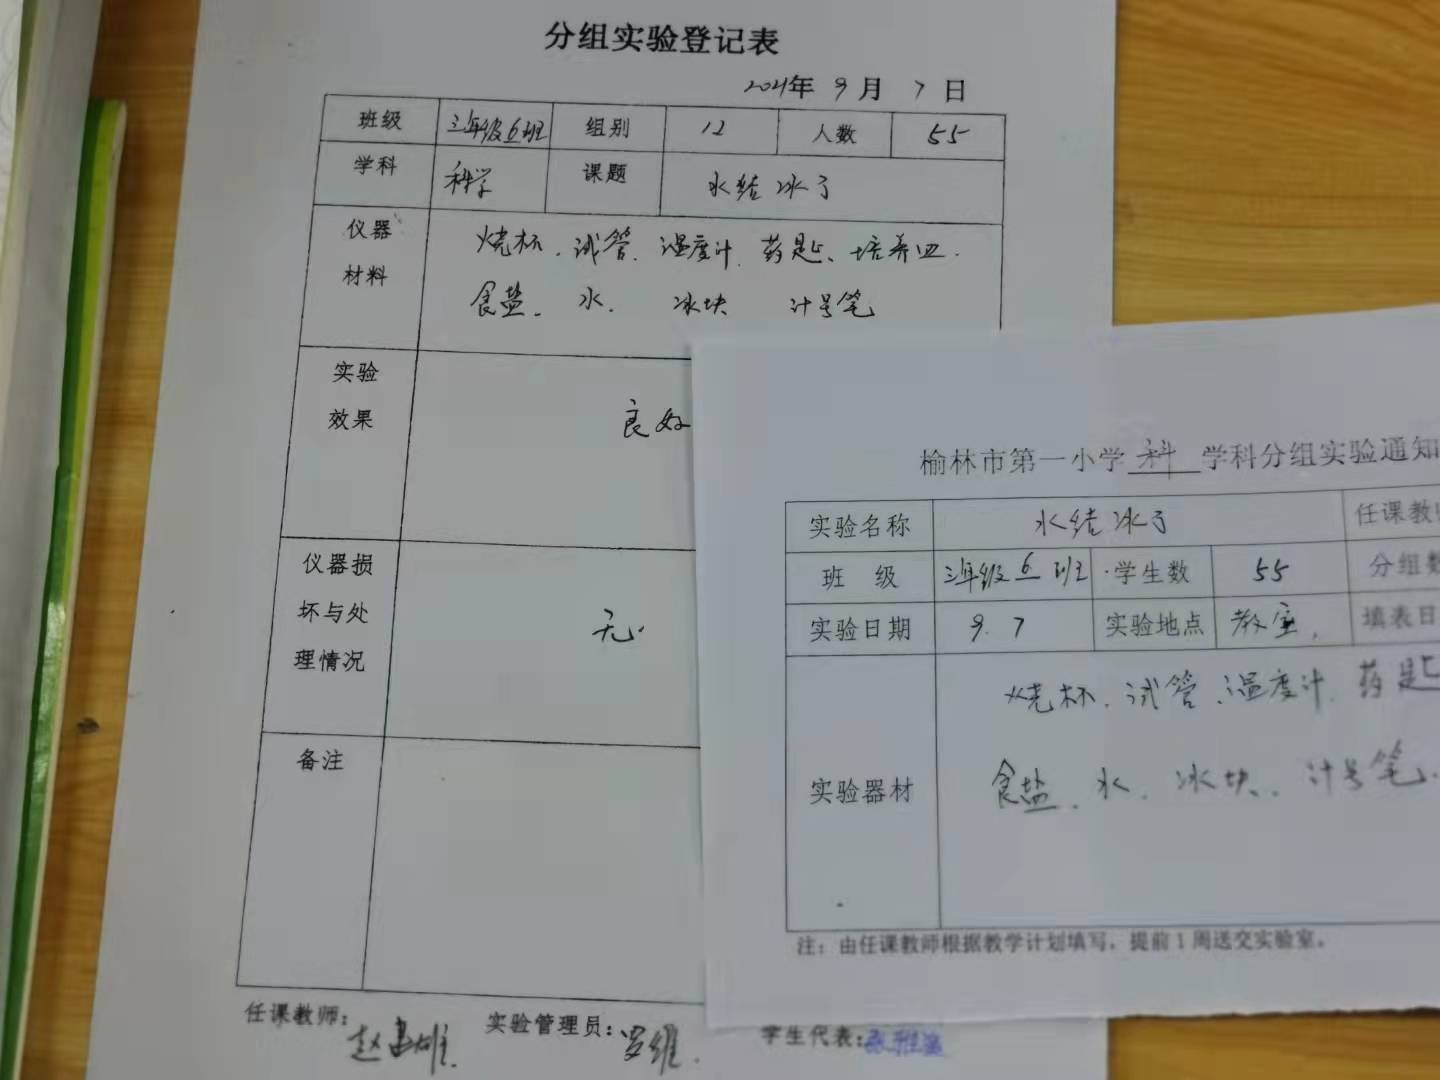 分组实验登记表
2021年 9 月 7 日
班级 三年级6班 组别 12 人数 55
学科 科学 课题 水结冰了
仪器材料 烧杯、试管、温度计、药匙、培养皿、
食盐、水、 冰块 计号笔
实验效果 良好
仪器损坏与处理情况 无
备注
任课教师: 赵 雄 实验管理员: 罗维 学生代表:
榆林市第一小学 科 学科分组实验通知
实验名称 水结冰了 任课教
班 级 三年级6班 学生数 55 分组
实验日期 9.7 实验地点 教室 填表日
实验器材 烧杯、试管、温度计、药匙
食盐、水、冰块、计号笔、
注：由任课教师根据教学计划填写，提前1周送交实验室。